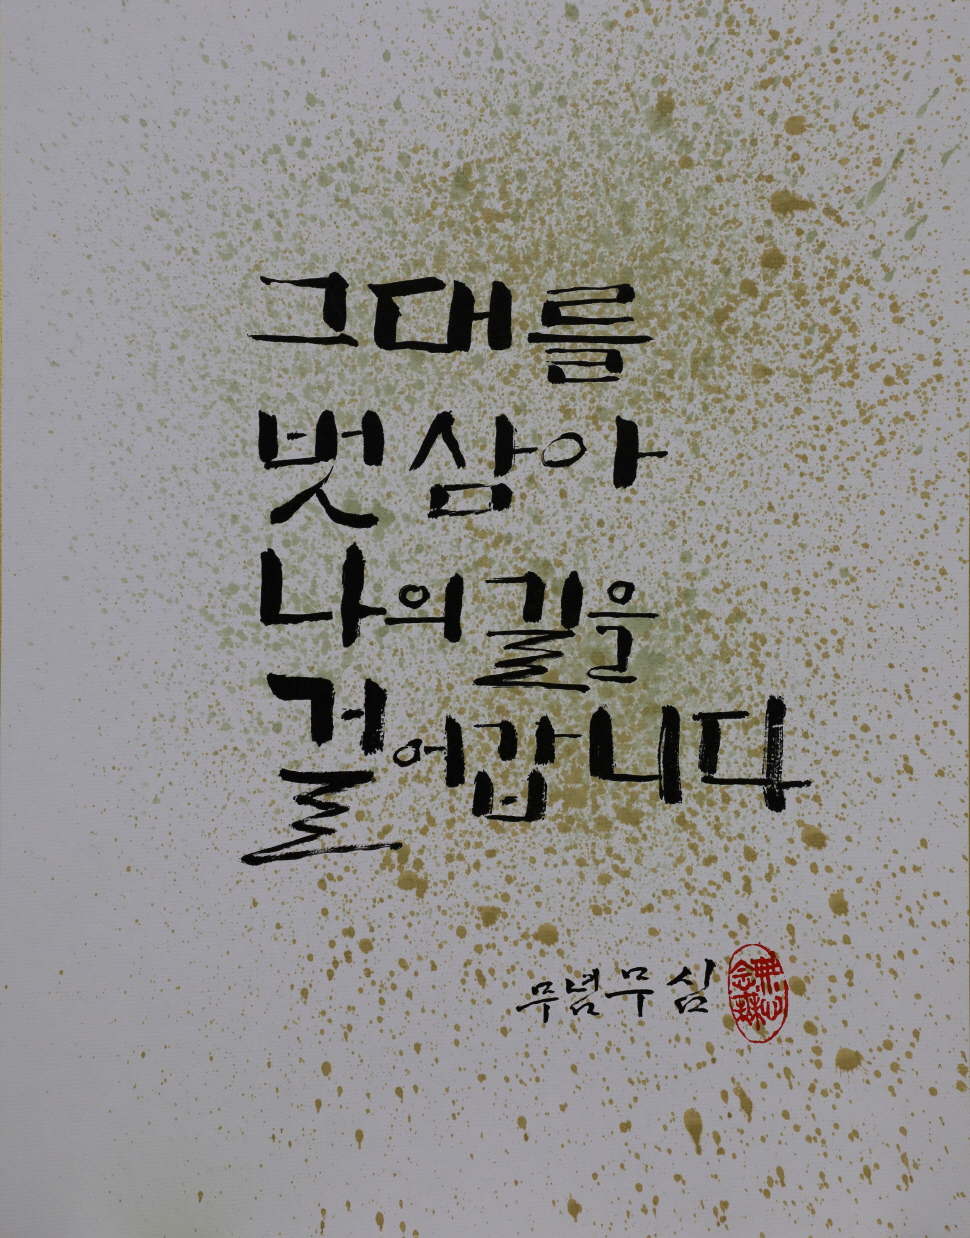 그대를
벗삼아
나의길을
걸어갑니다
무념무심